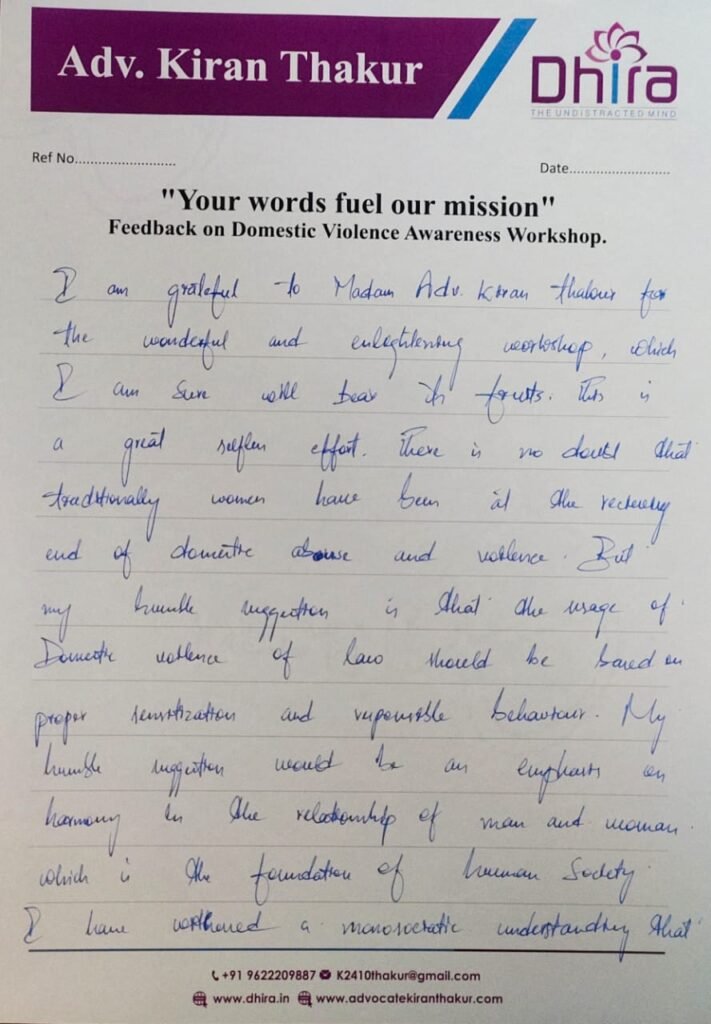 Adv. Kiran Thakur
Dhira
THE UNDISTRACTED MIND
Ref No..........................
Date..........................
"Your words fuel our mission"
Feedback on Domestic Violence Awareness Workshop.
I am grateful to Madam Adv. Kiran thakur for
the wonderful and enlightening workshop, which
I am sure will bear its fruits. This is
a great selfless effort. There is no doubt that
traditionally women have been at the receiving
end of domestic abuse and violence. But
my humble suggestion is that the usage of
Domestic violence of law should be based on
proper sensitization and responsible behaviour. My
humble suggestion would be an emphasis on
harmony in the relationship of man and woman
which is the foundation of human Society.
I have a understanding that
+91 9622209887 K2410thakur@gmail.com
www.dhira.in www.advocatekiranthakur.com